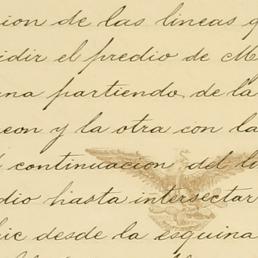 ion de las lineas q
idir el predio de M
una partiendo de la
eon y la otra con la
continuacion del li
dio hasta intersectar
ic desde la esquina